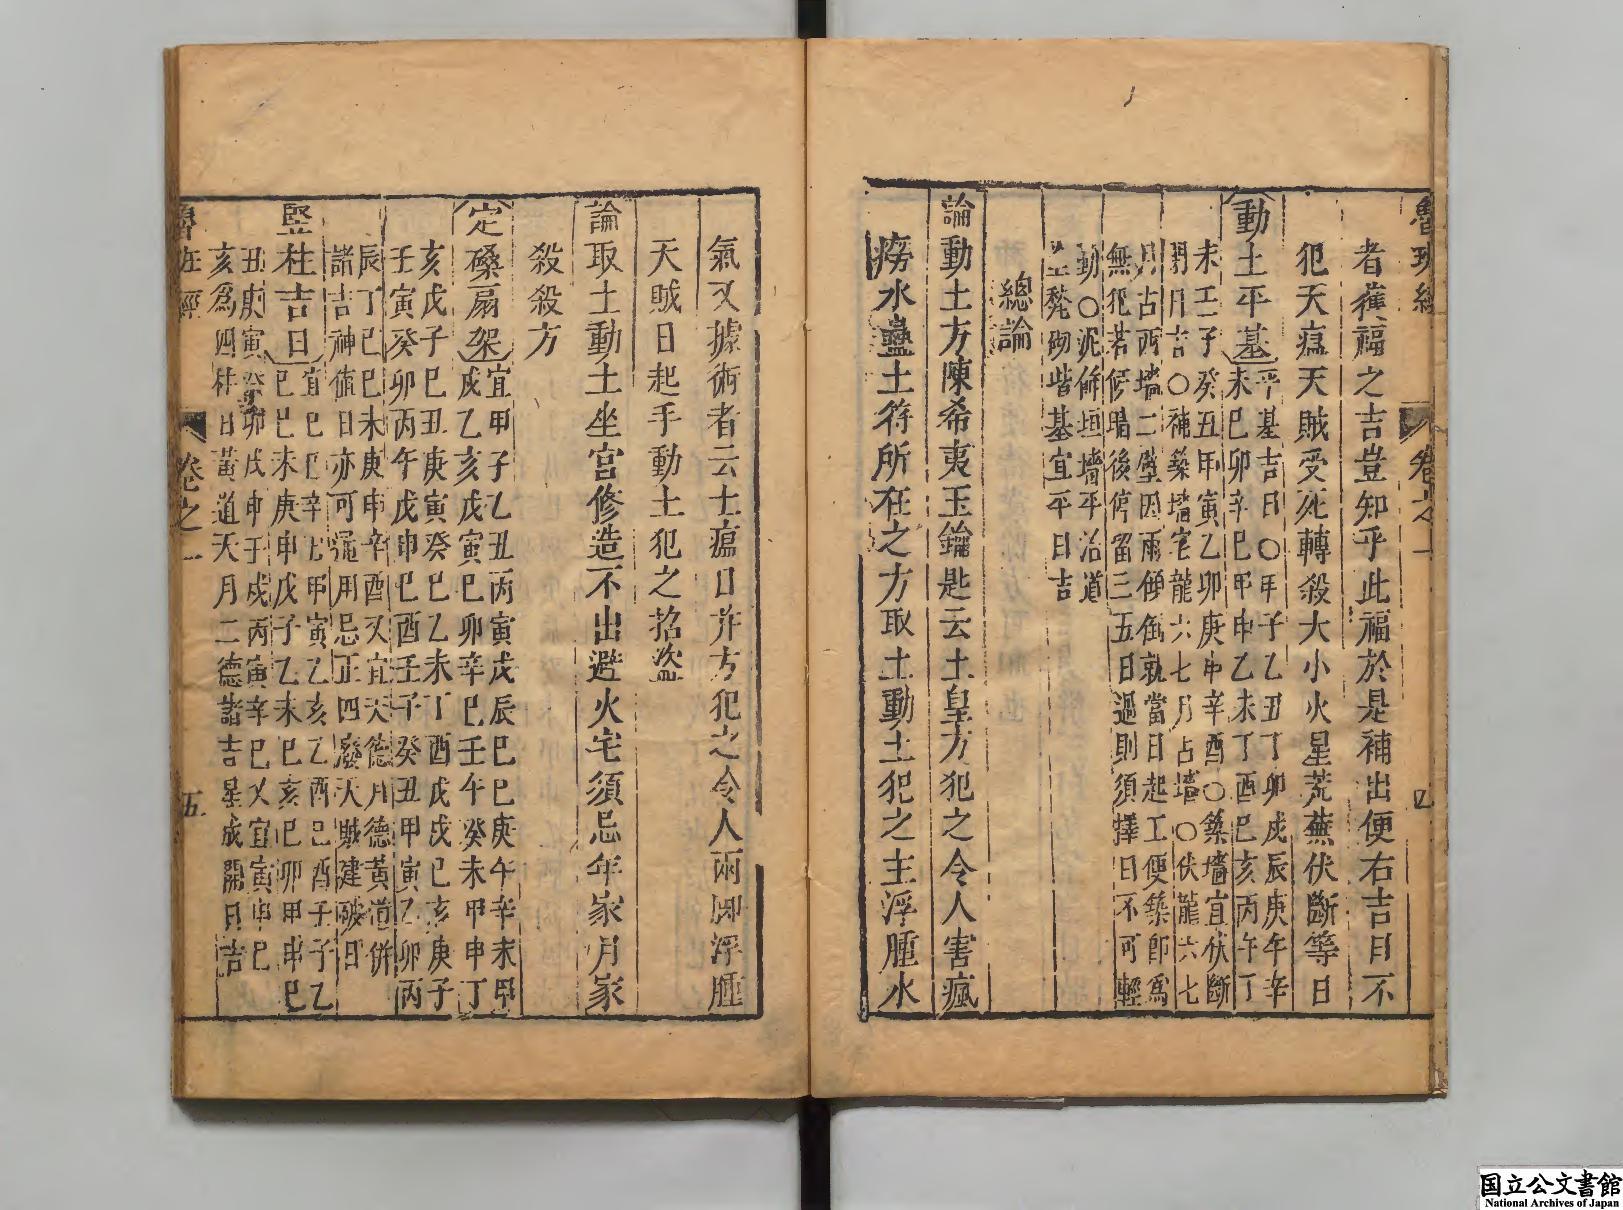 魯班經 卷之一
者獲福之吉豈知乎此福於是補出便右吉日不
犯天瘟天賊受死轉殺大小火星荒蕪伏斷等日
動土平基 平基吉日〇甲子乙丑丁卯戊辰庚午辛
未己卯辛巳甲申乙未丁酉己亥丙午丁
未壬子癸丑甲寅乙卯庚申辛酉〇築墻宜伏斷
閉月吉〇補築墻宅龍六七月占墻〇伏龍六七
月占西墻二壁因雨傾倒就當日起工便築即為
無犯若候晴後停留三五日過則須擇日不可輕
動〇泥飾垣墻平治道
塗甃砌堦基宜平日吉
總論
論動土方陳希夷玉鑰匙云土皇方犯之令人害瘋
癆水蠱土符所在之方取土動土犯之主浮腫水
氣又據術者云土瘟日并方犯之令人兩脚浮腫
天賊日起手動土犯之招盜
論取土動土坐宮修造不出避火宅須忌年家月家
殺殺方
定磉扇架 宜甲子乙丑丙寅戊辰己巳庚午辛未甲
戌乙亥戊寅己卯辛巳壬午癸未甲申丁
亥戊子己丑庚寅癸巳乙未丁酉戊戌己亥庚子
壬寅癸卯丙午戊申己酉壬子癸丑甲寅乙卯丙
辰丁巳己未庚申辛酉又宜天德月德黃道併
諸吉神值日亦可通用忌正四廢天賊建破日
竪柱吉日 宜己巳辛丑甲寅乙亥乙酉己酉壬子乙
巳己未庚申戊子乙未己亥己卯甲申己
丑庚寅癸卯戊申壬戌丙寅辛巳又宜寅申巳
亥為四柱日黃道天月二德諸吉星成開日吉
魯班經 卷之一 五
国立公文書館
National Archives of Japan